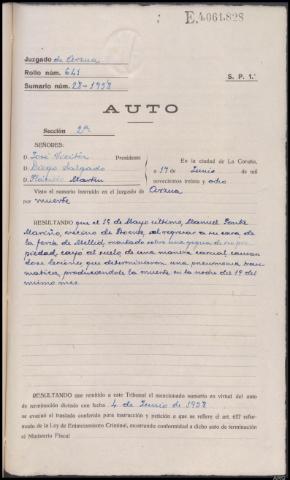 E.4.061.828
Juzgado de Arzua
Rollo núm. 641
Sumario núm. 28-1938
S. P. 1.ª
AUTO
Sección 2ª
SEÑORES:
D. José Presidente
D. Diego Salgado
D. Martin
En la ciudad de La Coruña,
a 17 Junio de mil
novecientos treinta y ocho
Visto el sumario instruído en el Juzgado de Arzua
por muerte
RESULTANDO que el 15 de Mayo ultimo, Manuel
Mariño, vecino de al regresar a su casa de
la feria de Mellid, montado sobre una yegua de su pro-
piedad, cayo al suelo de una manera casual causan-
dose lesiones que determinaron una pneumonia trau-
matica, produciendole la muerte en la noche del 19 del
mismo mes.
RESULTANDO que remitido a este Tribunal el mencionado sumario en virtud del auto
de terminación dictado con fecha 4 de Junio de 1938
se evacuó el traslado conferido para instrucción y petición a que se refiere el art. 627 refor-
mado de la Ley de Enjuiciamiento Criminal, mostrando conformidad a dicho auto de terminación
el Ministerio Fiscal